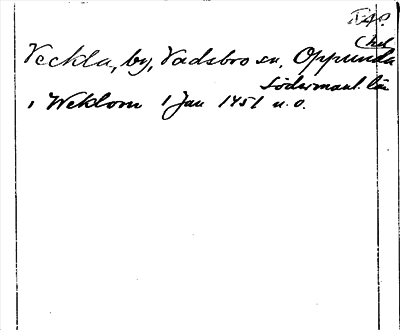 Veckla, by, Vadsbro sn, Oppunda
hd
Södermanl. län
i Weklom 1 Jan 1451 u.o.